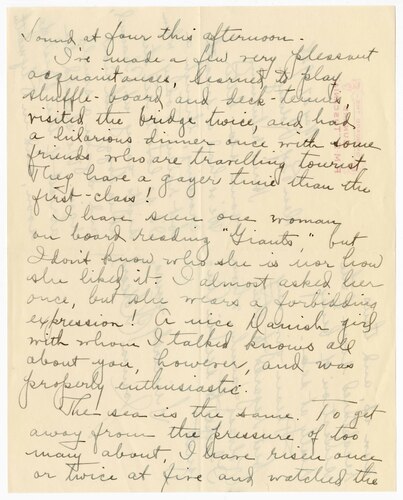 Sound at four this afternoon.
I've made a few very pleasant
acquaintances, learned to play
shuffle-board and deck-tennis,
visited the bridge twice, and had
a hilarious dinner once with some
friends who are travelling tourist.
They have a gayer time than the
first-class!
I have seen one woman
on board reading "Giants," but
I don't know who she is nor how
she liked it. I almost asked her
once, but she wears a forbidding
expression! A nice Danish girl
with whom I talked knows all
about you, however, and was
properly enthusiastic.
The sea is the same. To get
away from the pressure of too
many about, I have risen once
or twice at five and watched the